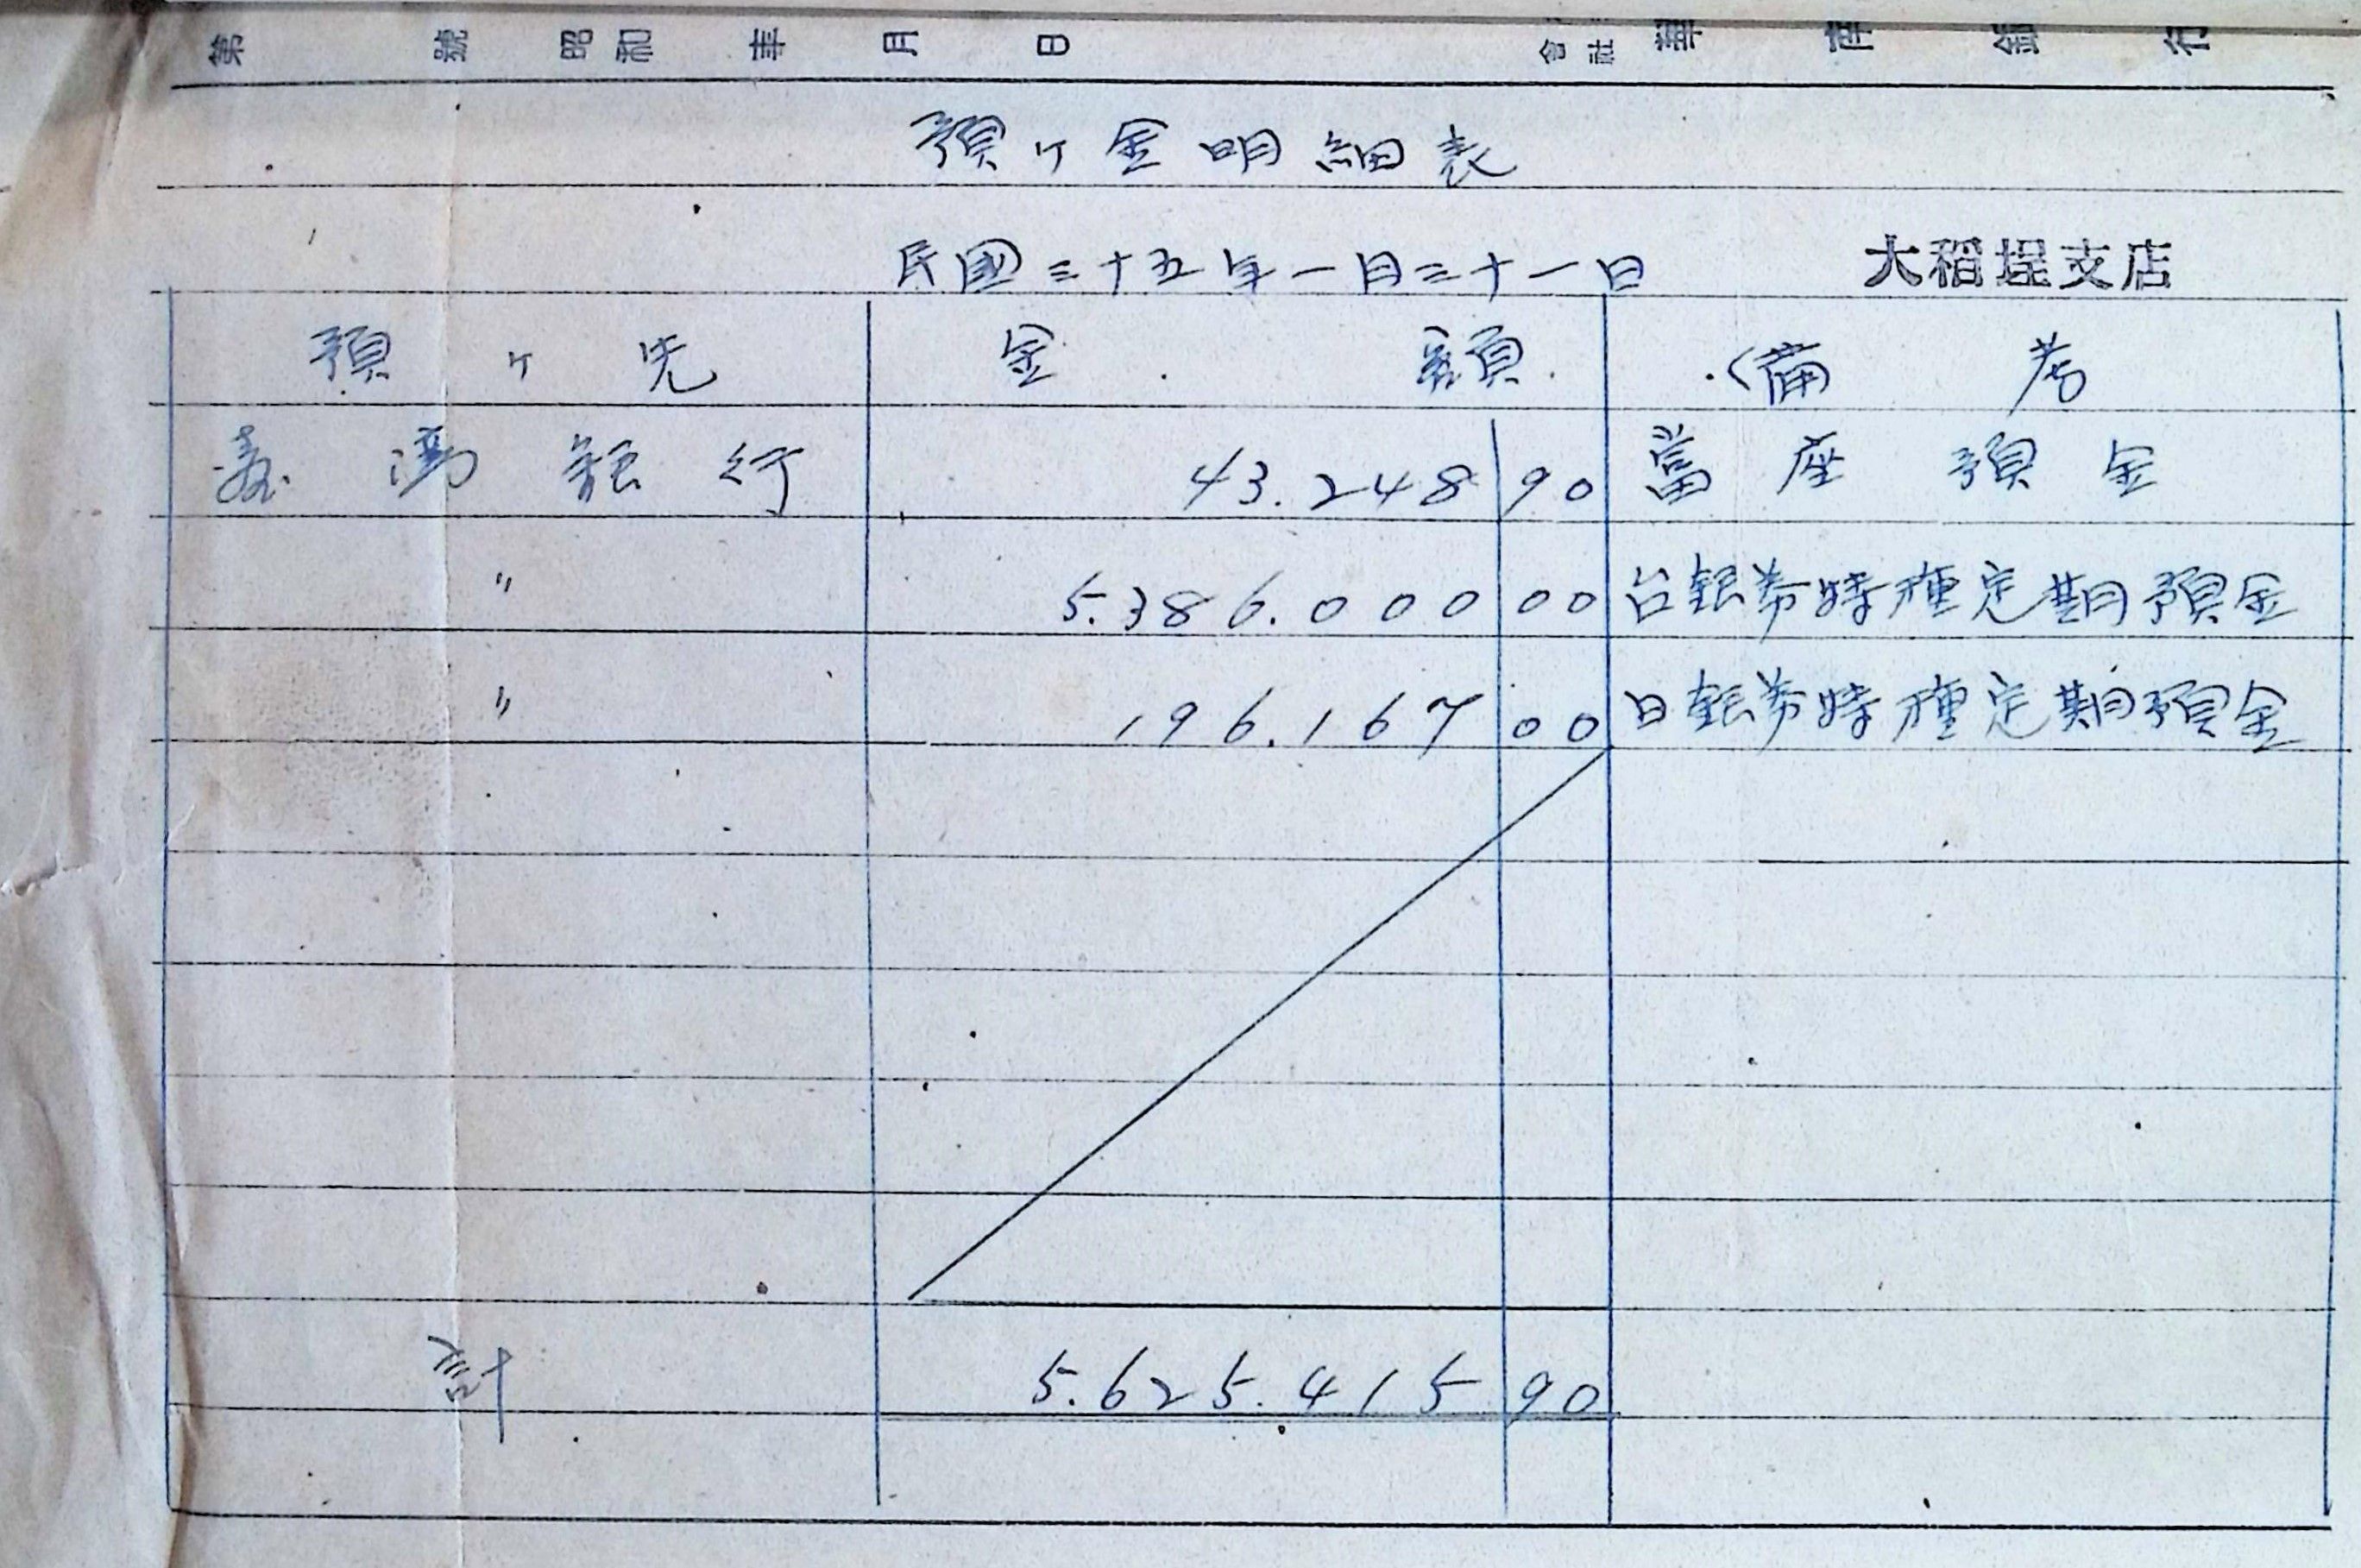 第 號 昭和 年 月 日 會社 華南銀行
預ケ金明細表
民國三十五年一月三十一日 大稻埕支店
預ケ先 金額 備考
臺灣銀行 43.248 90 當座預金
〃 5.386.000 00 台銀券特種定期預金
〃 196.167 00 日銀券特種定期預金
計 5.625.415 90